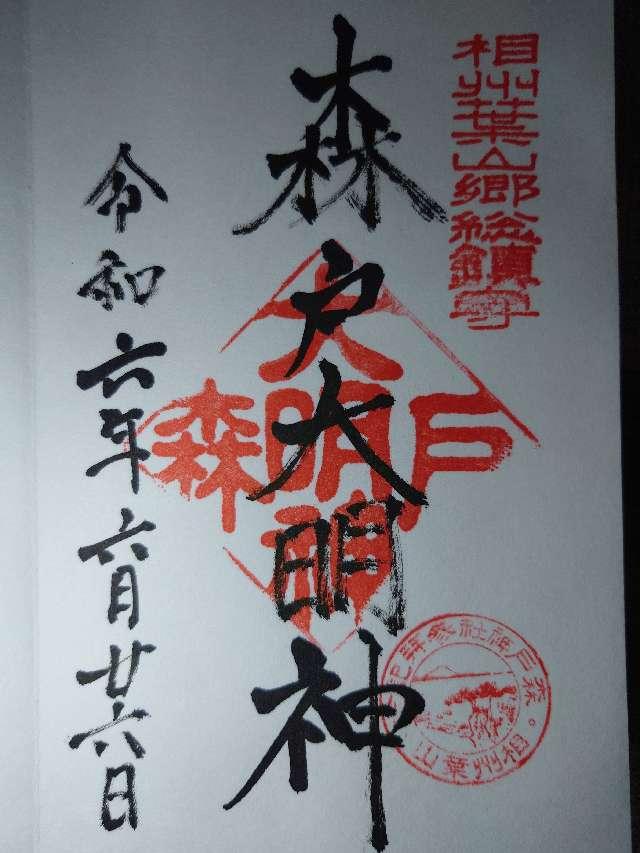 相州葉山郷総鎮守
森戸大明神
森戸
大明神
森戸神社参拝記念
相州葉山
令和六年六月廿六日